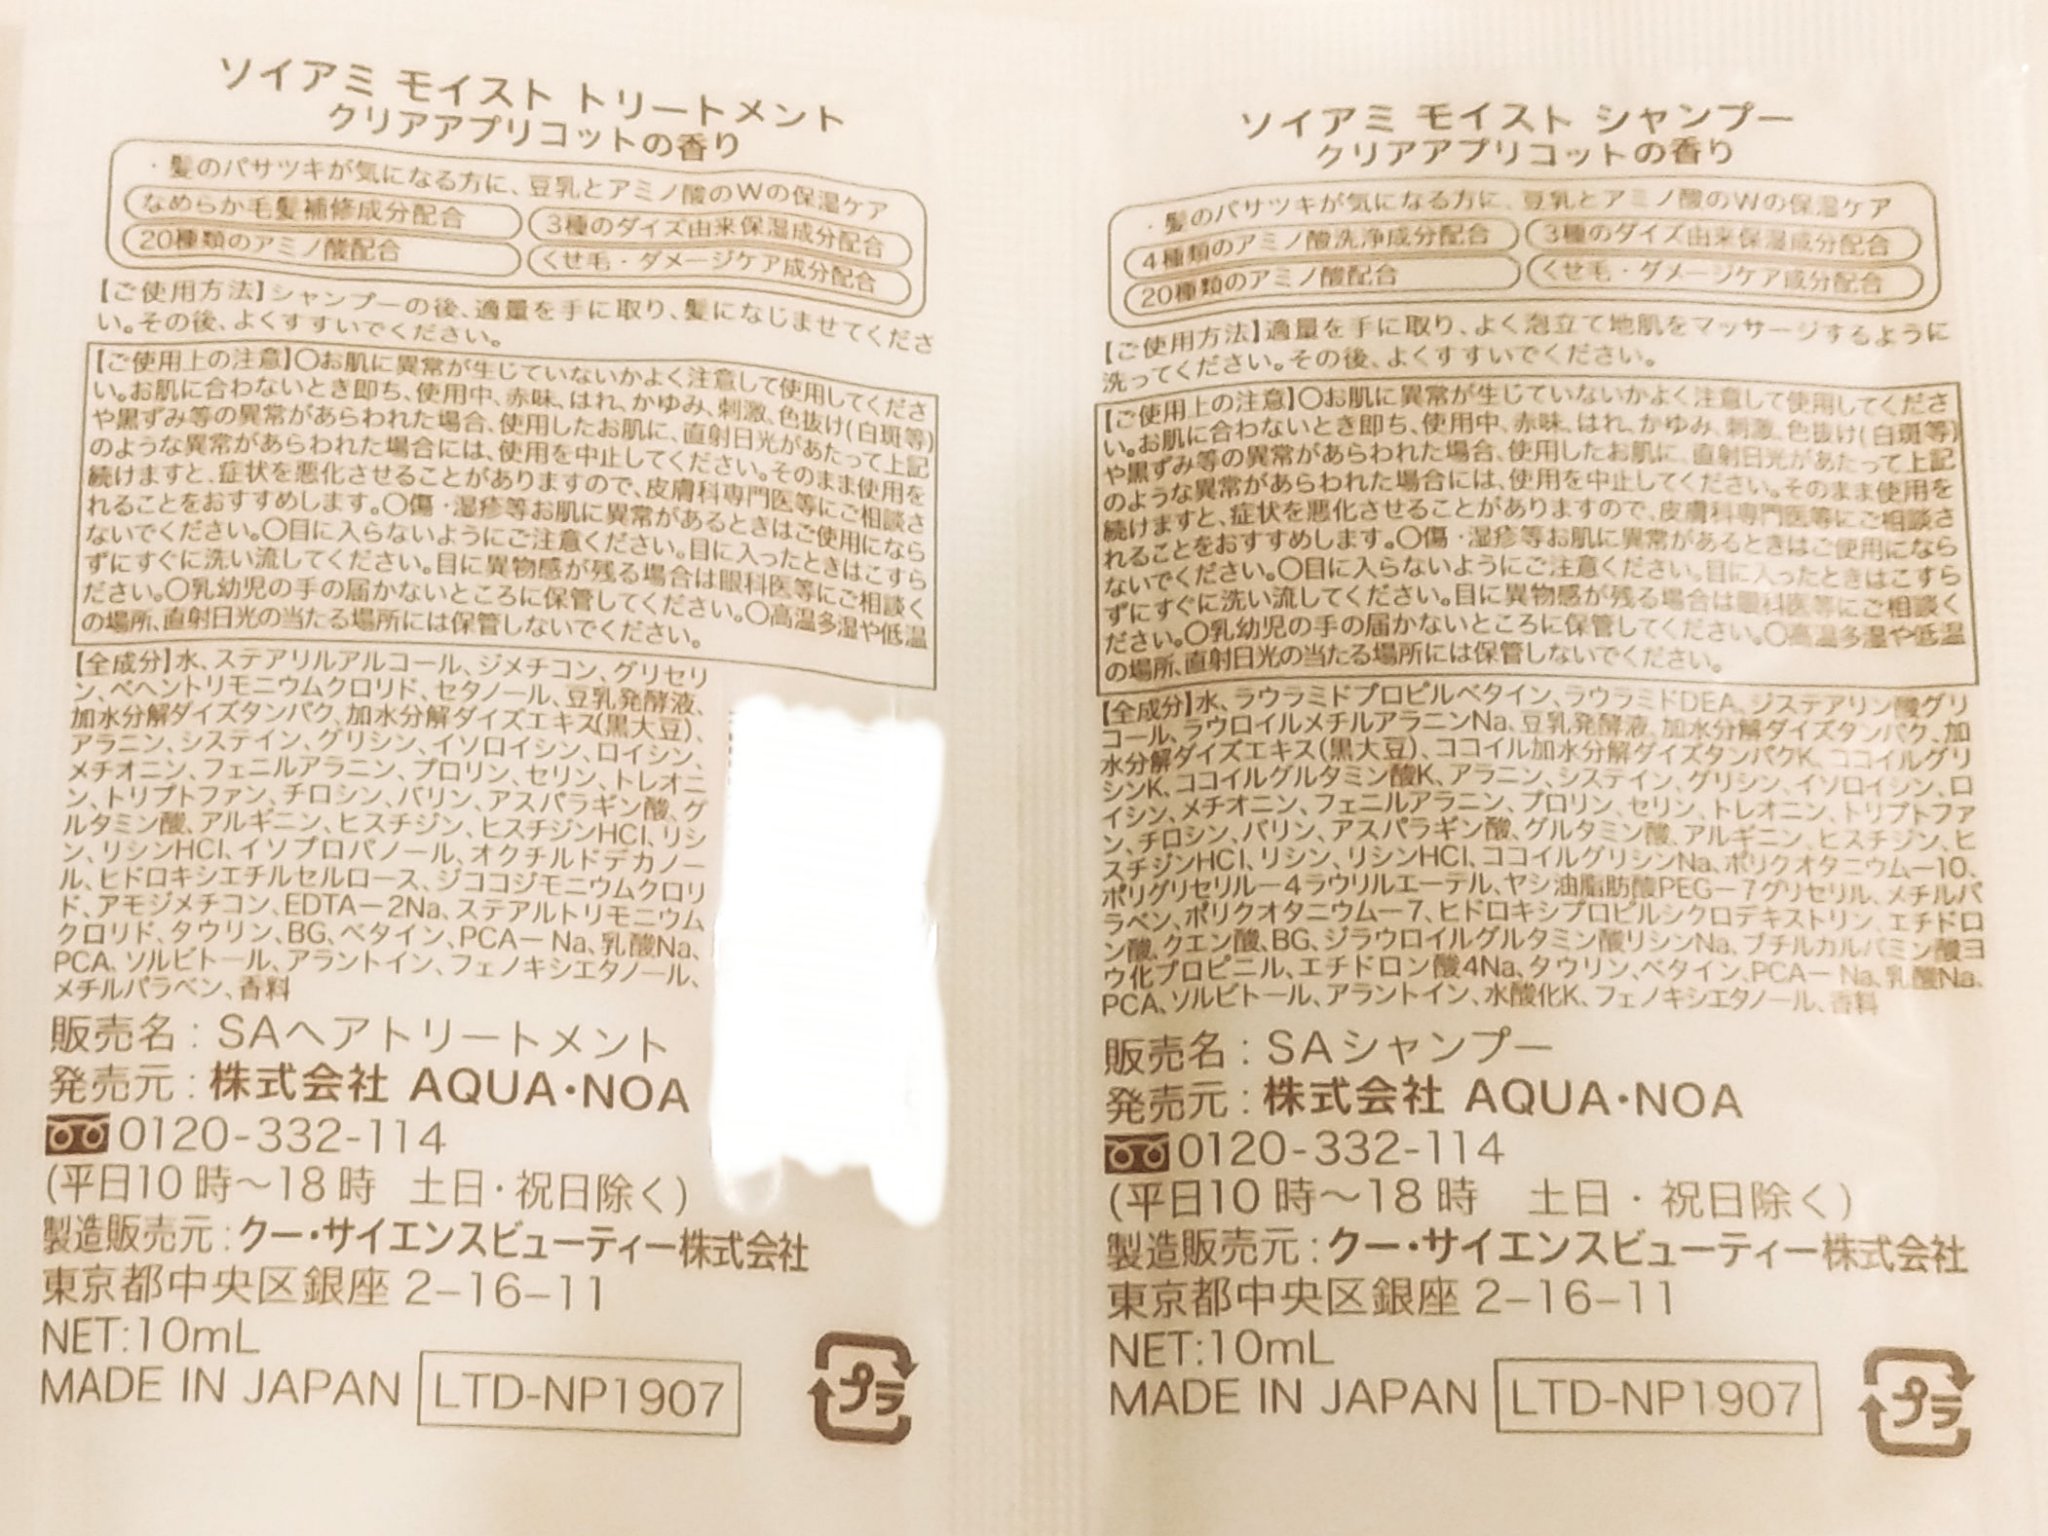 ソイアミ モイスト トリートメント
クリアアプリコットの香り
・髪のパサツキが気になる方に、豆乳とアミノ酸のWの保湿ケア
なめらか毛髪補修成分配合
3種のダイズ由来保湿成分配合
20種類のアミノ酸配合
くせ毛・ダメージケア成分配合
【ご使用方法】シャンプーの後、適量を手に取り、髪になじませてくださ
い。その後、よくすすいでください。
【ご使用上の注意】〇お肌に異常が生じていないかよく注意して使用してくださ
い。お肌に合わないとき即ち、使用中、赤味、はれ、かゆみ、刺激、色抜け(白斑等)
や黒ずみ等の異常があらわれた場合、使用したお肌に、直射日光があたって上記
のような異常があらわれた場合には、使用を中止してください。そのまま使用を
続けますと、症状を悪化させることがありますので、皮膚科専門医等にご相談さ
れることをおすすめします。〇傷・湿疹等お肌に異常があるときはご使用になら
ないでください。〇目に入らないようにご注意ください。目に入ったときはこすら
ずにすぐに洗い流してください。目に異物感が残る場合は眼科医等にご相談く
ださい。〇乳幼児の手の届かないところに保管してください。〇高温多湿や低温
の場所、直射日光の当たる場所には保管しないでください。
【全成分】水、ステアリルアルコール、ジメチコン、グリセリ
ン、ベヘントリモニウムクロリド、セタノール、豆乳発酵液、
加水分解ダイズタンパク、加水分解ダイズエキス(黒大豆)、
アラニン、システイン、グリシン、イソロイシン、ロイシン、
メチオニン、フェニルアラニン、プロリン、セリン、トレオニ
ン、トリプトファン、チロシン、バリン、アスパラギン酸、グ
ルタミン酸、アルギニン、ヒスチジン、ヒスチジンHCl、リシ
ン、リシンHCl、イソプロパノール、オクチルドデカノー
ル、ヒドロキシエチルセルロース、ジココジモニウムクロリ
ド、アモジメチコン、EDTAー2Na、ステアルトリモニウム
クロリド、タウリン、BG、ベタイン、PCAーNa、乳酸Na、
PCA、ソルビトール、アラントイン、フェノキシエタノール、
メチルパラベン、香料
販売名:SAヘアトリートメント
発売元:株式会社 AQUA・NOA
0120-332-114
(平日10時〜18時 土日・祝日除く)
製造販売元:クー・サイエンスビューティー株式会社
東京都中央区銀座2−16−11
NET:10mL
MADE IN JAPAN LTD-NP1907
プラ
ソイアミ モイスト シャンプー
クリアアプリコットの香り
・髪のパサツキが気になる方に、豆乳とアミノ酸のWの保湿ケア
4種類のアミノ酸洗浄成分配合
3種のダイズ由来保湿成分配合
20種類のアミノ酸配合
くせ毛・ダメージケア成分配合
【ご使用方法】適量を手に取り、よく泡立て地肌をマッサージするように
洗ってください。その後、よくすすいでください。
【ご使用上の注意】〇お肌に異常が生じていないかよく注意して使用してくださ
い。お肌に合わないとき即ち、使用中、赤味、はれ、かゆみ、刺激、色抜け(白斑等)
や黒ずみ等の異常があらわれた場合、使用したお肌に、直射日光があたって上記
のような異常があらわれた場合には、使用を中止してください。そのまま使用を
続けますと、症状を悪化させることがありますので、皮膚科専門医等にご相談さ
れることをおすすめします。〇傷・湿疹等お肌に異常があるときはご使用になら
ないでください。〇目に入らないようにご注意ください。目に入ったときはこすら
ずにすぐに洗い流してください。目に異物感が残る場合は眼科医等にご相談く
ださい。〇乳幼児の手の届かないところに保管してください。〇高温多湿や低温
の場所、直射日光の当たる場所には保管しないでください。
【全成分】水、ラウラミドプロピルベタイン、ラウラミドDEA、ジステアリン酸グリ
コール、ラウロイルメチルアラニンNa、豆乳発酵液、加水分解ダイズタンパク、加
水分解ダイズエキス(黒大豆)、ココイル加水分解ダイズタンパクK、ココイルグリ
シンK、ココイルグルタミン酸K、アラニン、システイン、グリシン、イソロイシン、ロ
イシン、メチオニン、フェニルアラニン、プロリン、セリン、トレオニン、トリプトファ
ン、チロシン、バリン、アスパラギン酸、グルタミン酸、アルギニン、ヒスチジン、ヒ
スチジンHCl、リシン、リシンHCl、ココイルグリシンNa、ポリクオタニウムー10、
ポリグリセリルー4ラウリルエーテル、ヤシ油脂肪酸PEGー7グリセリル、メチルパ
ラベン、ポリクオタニウムー7、ヒドロキシプロピルシクロデキストリン、エチドロ
ン酸、クエン酸、BG、ジラウロイルグルタミン酸リシンNa、ブチルカルバミン酸ヨ
ウ化プロピニル、エチドロン酸4Na、タウリン、ベタイン、PCAーNa、乳酸Na、
PCA、ソルビトール、アラントイン、水酸化K、フェノキシエタノール、香料
販売名:SAシャンプー
発売元:株式会社 AQUA・NOA
0120-332-114
(平日10時〜18時 土日・祝日除く)
製造販売元:クー・サイエンスビューティー株式会社
東京都中央区銀座2−16−11
NET:10mL
MADE IN JAPAN LTD-NP1907
プラ